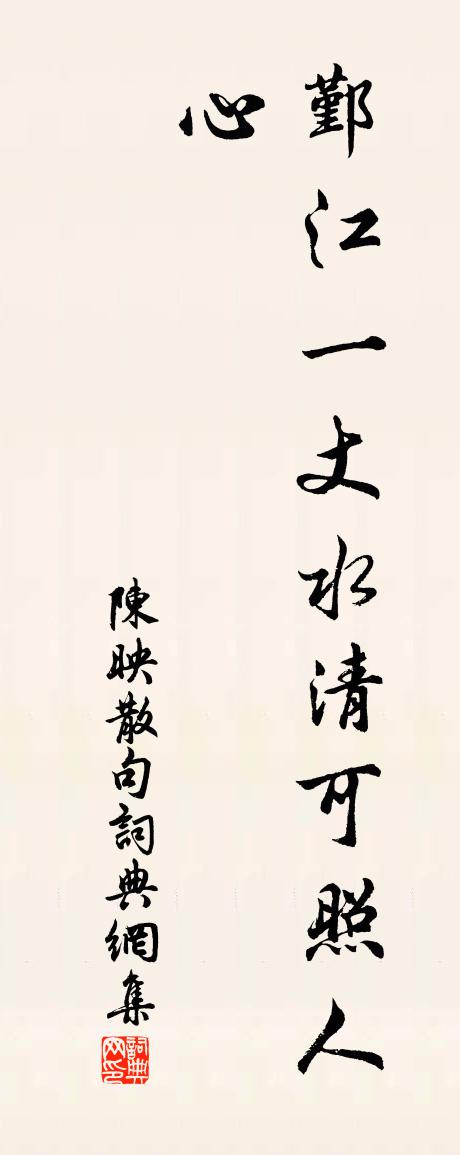 鄞江一丈水清可照人
心
陳映散句詞典網集
詞典網印